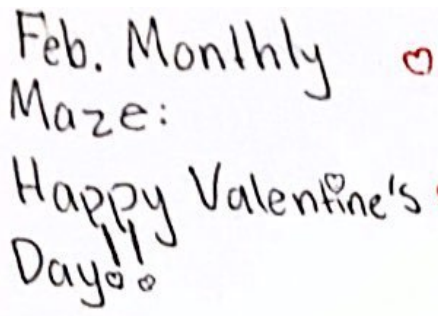 Feb. Monthly
Maze:
Happy Valentine's
Day!!